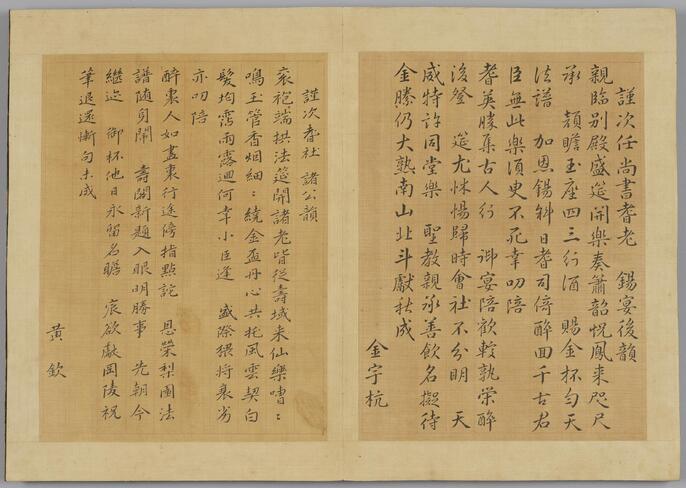 謹次任尚書耆老 錫宴後韻
親臨別殿盛筵開樂奏簫韶悅鳳來咫尺
承 顔瞻玉座四三行酒 賜金杯勻天
法譜 加恩錫斞日耆司倚醉回千古名
臣無此樂須叟不死幸叨陪
耆英勝集古人行 御宴陪歡較孰榮醉
後登 筵尤悚惕歸時會社不分明 天
威特許同堂樂 聖教親承善飮名擬待
金縢仍大熟南山北斗獻秋成
金宇杭
謹次耆社 諸公韻
袞袍端拱法筵開諸老皆從壽域來仙樂嘈〻
鳴玉管香烟細〻繞金盃丹心共托風雲契白
髮均霑雨露廻何幸小臣逢 盛際猥將衰劣
亦叨陪
醉裏人如畫裏行途傍指點詫 恩榮梨園法
譜隨身鬧 壽閣新題入眼明勝事 先朝今
繼迹 御杯他日永留名瞻 宸欲獻岡陵祝
筆退還慚句未成
黃欽